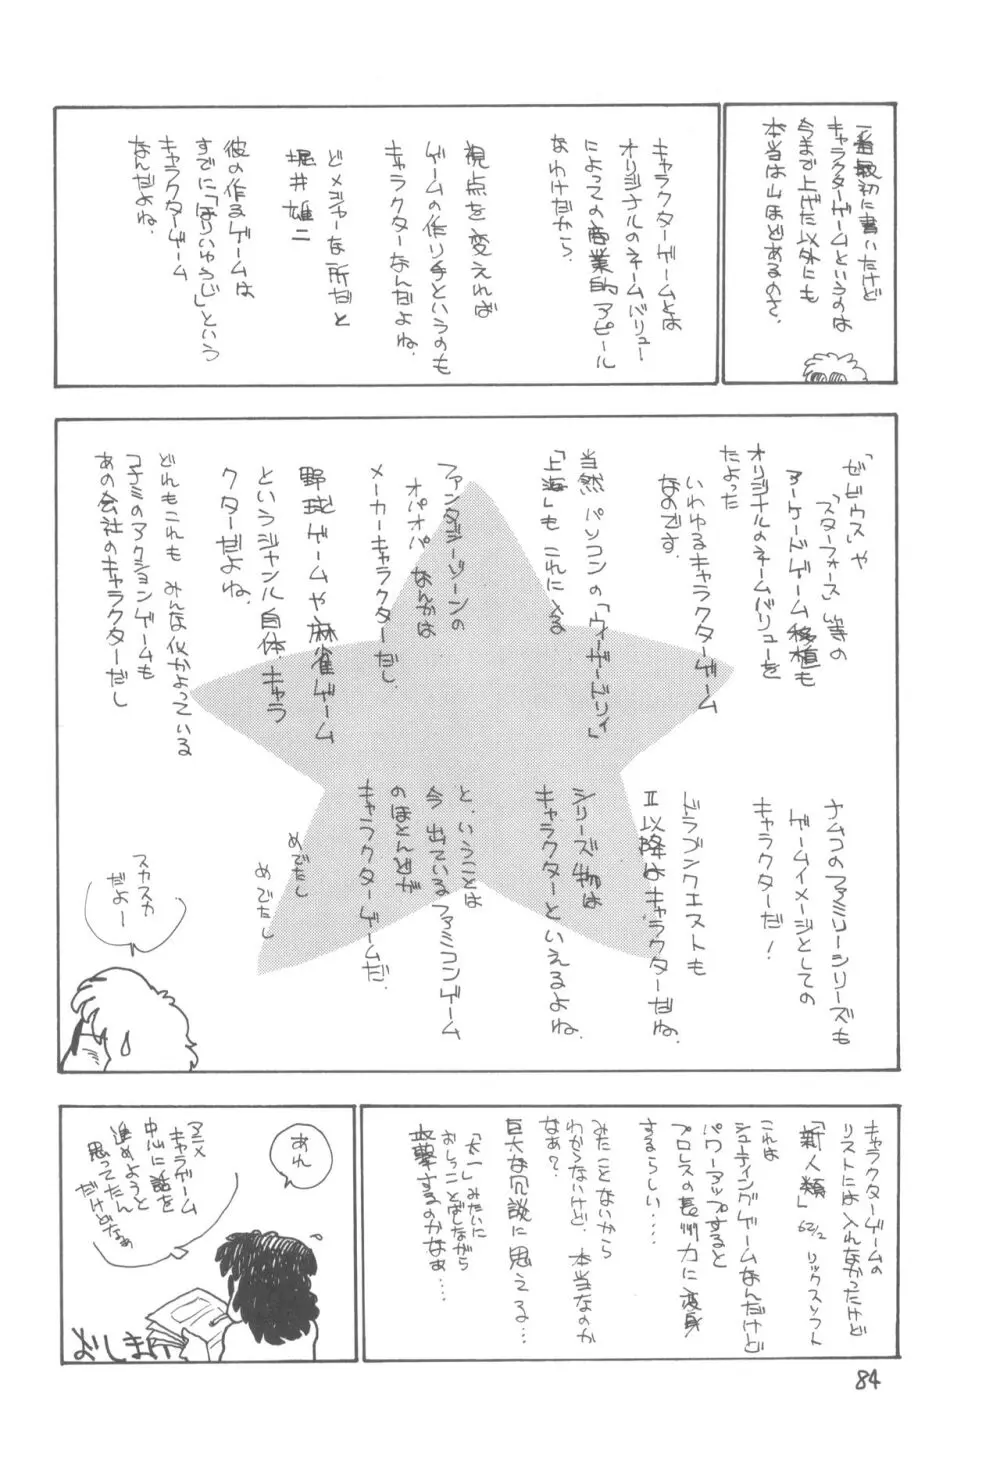 一番最初に書いたけど
キャラクターゲームというのは
今まで上げた以外にも
本当は山ほどあるのさ、
キャラクターゲームとは
オリジナルのネームバリュー
によっての商業的アピール
なわけだから、
視点を変えれば
ゲームの作り手というのも
キャラクターなんだよね、
どメジャーな所だと
堀井雄二
彼の作るゲームは
すでに「ほりいゆうじ」という
キャラクターゲーム
なんだよね、
「ゼビウス」や
「スターフォース」等の
アーケードゲーム移植も
オリジナルのネームバリューを
たよった
いわゆるキャラクターゲーム
なのです、
当然パソコンの「ウィーザードリィ」
「上海」もこれに入る
ファンタジーゾーンの
オパオパなんかは
メーカーキャラクターだし、
野球ゲームや麻雀ゲーム
というジャンル自体、キャラ
クターだよね、
どれもこれもみんな似かよっている
コナミのアクションゲームも
あの会社のキャラクターだし
ナムコのファミリーシリーズも
ゲームイメージとしての
キャラクターだ!
ドラゴンクエストも
II以降はキャラクターだね、
シリーズ物は
キャラクターといえるよね、
と、いうことは
今出ているファミコンゲーム
のほとんどが
キャラクターゲームだ、
めでたし
めでたし
スカスカ
だよー
キャラクターゲームの
リストには入れなかったけど
「新人類」62/2 リックスソフト
これは
シューティングゲームなんだけど
パワーアップすると
プロレスの長州力に変身
するらしい……
みたことないから
わからないけど、本当なのか
なあ?
巨大な冗談に思える…
「太一」みたいに
おしっことばしながら
攻撃するのかなぁ…
あれ
アニメ
キャラゲーム
中心に話を
進めようと
思ってたん
だけどなぁ
よしまい
84